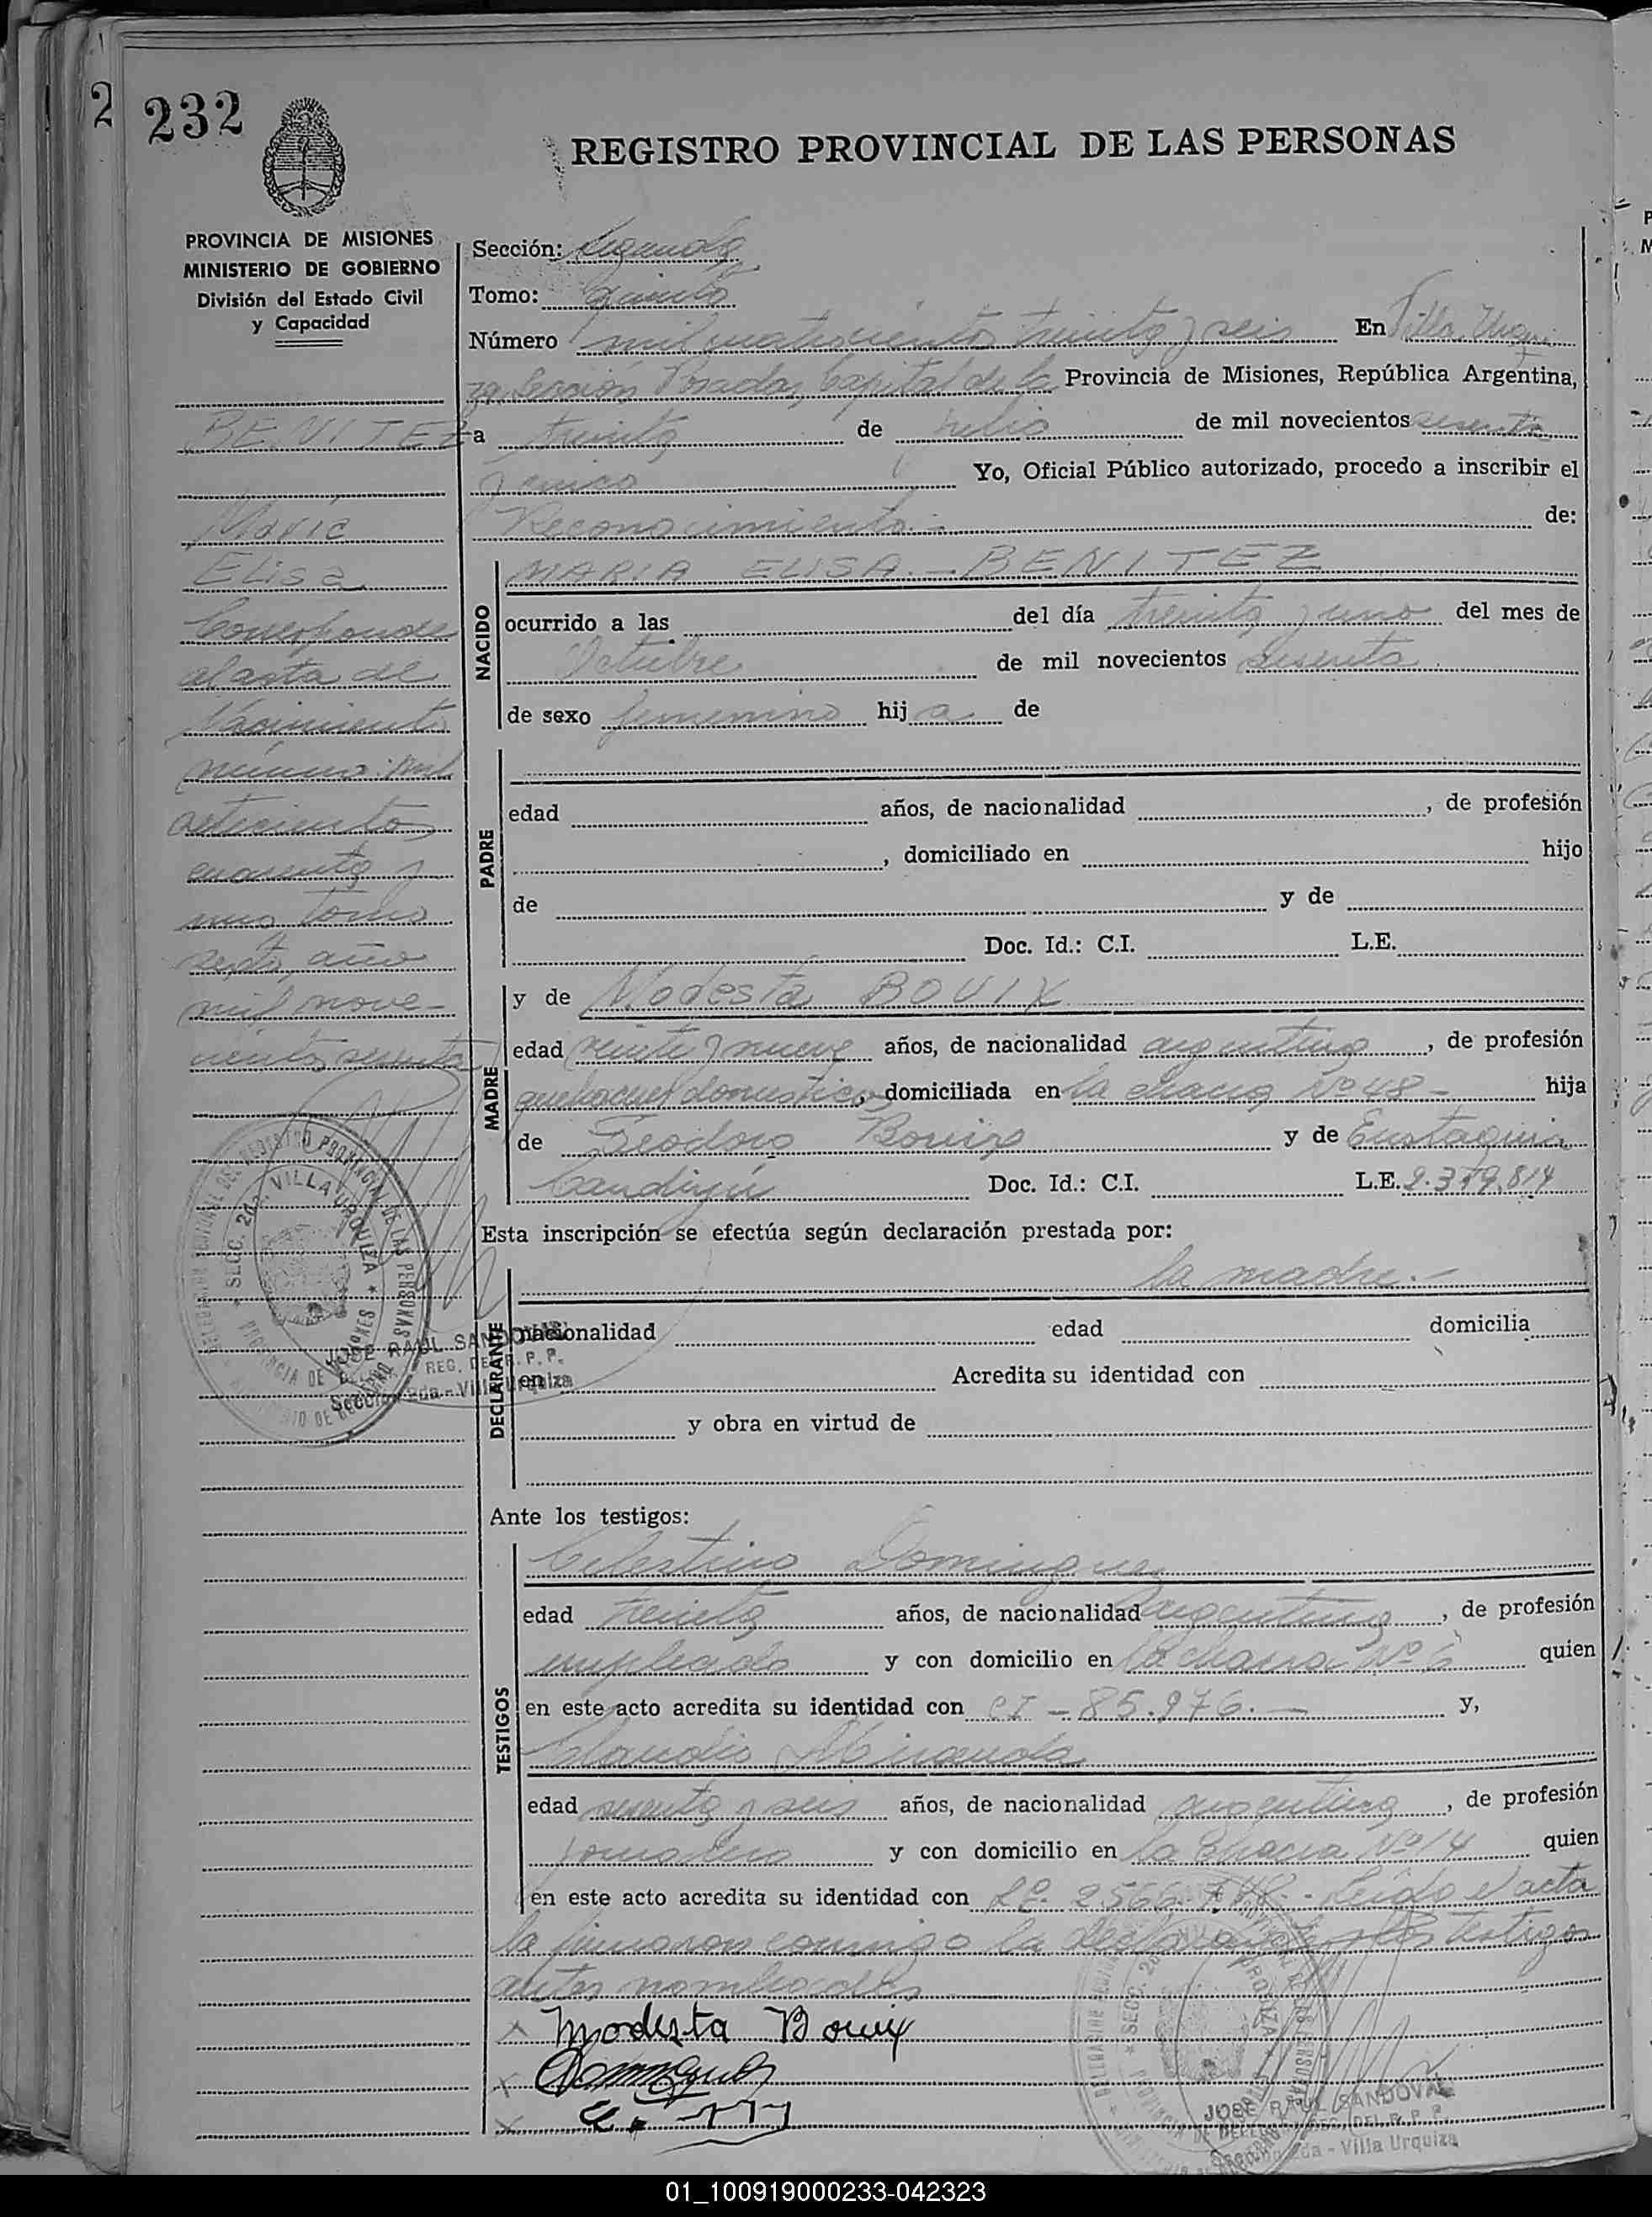 232
REGISTRO PROVINCIAL DE LAS PERSONAS
PROVINCIA DE MISIONES
MINISTERIO DE GOBIERNO
División del Estado Civil
y Capacidad
BENITEZ
Maria
Elisa
Corresponde
al acta de
Nacimiento
número: mil
setecientos
cuarenta y
uno tomo
sexto año
mil nove-
cientos sesenta
Sección: Segunda
Tomo: quinto
Número mil cuatrocientos treinta y seis En Villa Urqui
za, Sección Posadas, Capital de la Provincia de Misiones, República Argentina,
a treinta de Julio de mil novecientos sesenta
y cinco Yo, Oficial Público autorizado, procedo a inscribir el
Reconocimiento.- de:
NACIDO
MARIA ELISA.- BENITEZ
ocurrido a las del día treinta y uno del mes de
Octubre de mil novecientos sesenta
de sexo femenino hija de
PADRE
edad años, de nacionalidad , de profesión
, domiciliado en hijo
de y de
Doc. Id.: C.I. L.E.
MADRE
y de Modesta BOUIX
edad veinte y nueve años, de nacionalidad argentina, de profesión
quehaceres domesticos, domiciliada en la chacra Nº 48 - hija
de Teodoro Bouix y de Eustaquia
Candiyú Doc. Id.: C.I. L.E. 2.379.814
Esta inscripción se efectúa según declaración prestada por:
DECLARANTE
la madre.-
nacionalidad edad domicilia
en Acredita su identidad con
y obra en virtud de
Ante los testigos:
TESTIGOS
Celestino Dominguez
edad treinta años, de nacionalidad argentina, de profesión
empleado y con domicilio en la chacra Nº 6 quien
en este acto acredita su identidad con CI - 85.976.- y,
Claudio
edad sesenta y seis años, de nacionalidad argentina, de profesión
jornalero y con domicilio en la Chacra Nº 14 quien
en este acto acredita su identidad con LE. Leido el acta
la firmaron conmigo la declarante y los testigos
antes nombrados
x Modesta Bouix
x Dominguez
x
SECC. 2da. VILLA URQUIZA * MISIONES
JOSE RAUL SANDOVAL
REG. DEL R. P. P.
Sección 2da - Villa Urquiza
JOSE RAUL SANDOVAL
REG. DEL R. P. P.
Sección 2da - Villa Urquiza
01_100919000233-042323